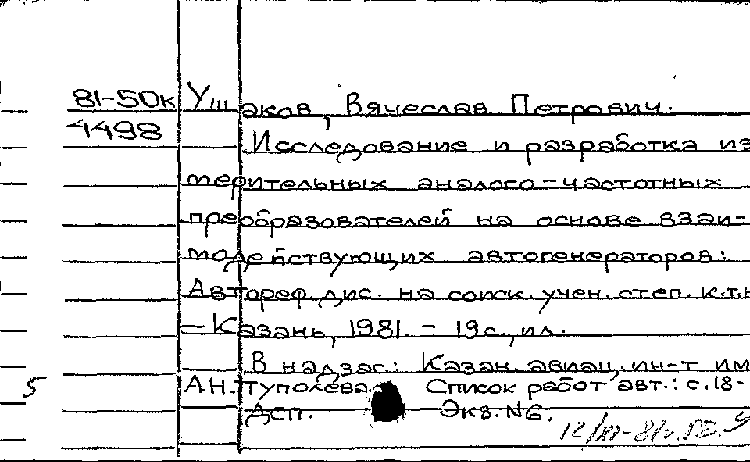 81-50к Ушаков, Вячеслав Петрович.
4498 Исследование и разработка из
терительных аналого-частотных
преобразователей на основе взаи-
модействующих автогенераторов:
Автореф. дис. на соиск. учен. степ. к.т.н
- Казань, 1981. - 19с., ил.
В надзаг.: Казан. авиац. ин-т им
5 А.Н. Туполева Список работ авт.: с. 18-
Дсп. Экз. №6.